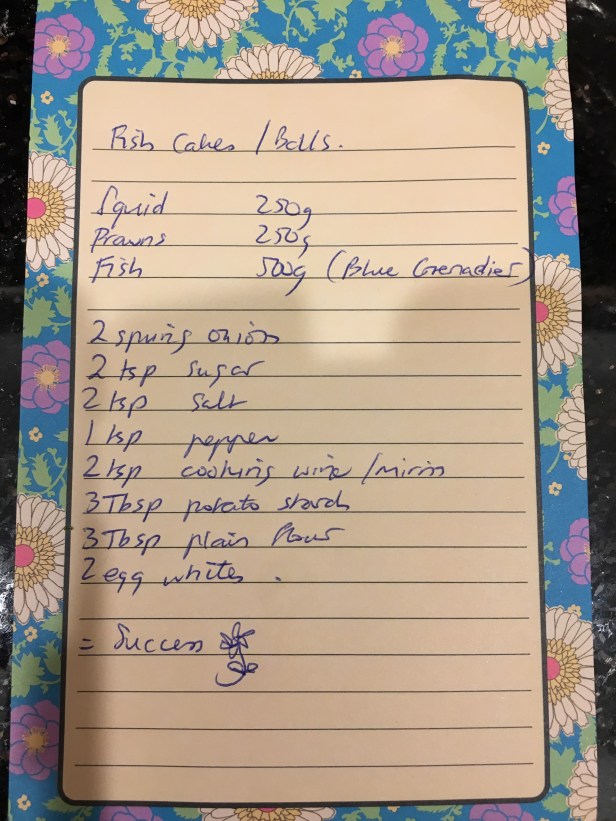 Fish Cakes / Balls.
Squid 250g
Prawns 250g
Fish 500g (Blue Grenadier)
2 spring onion
2 tsp sugar
2 tsp salt
1 tsp pepper
2 tsp cooking wine / mirin
3 Tbsp potato starch
3 Tbsp plain flour
2 egg whites.
= Success